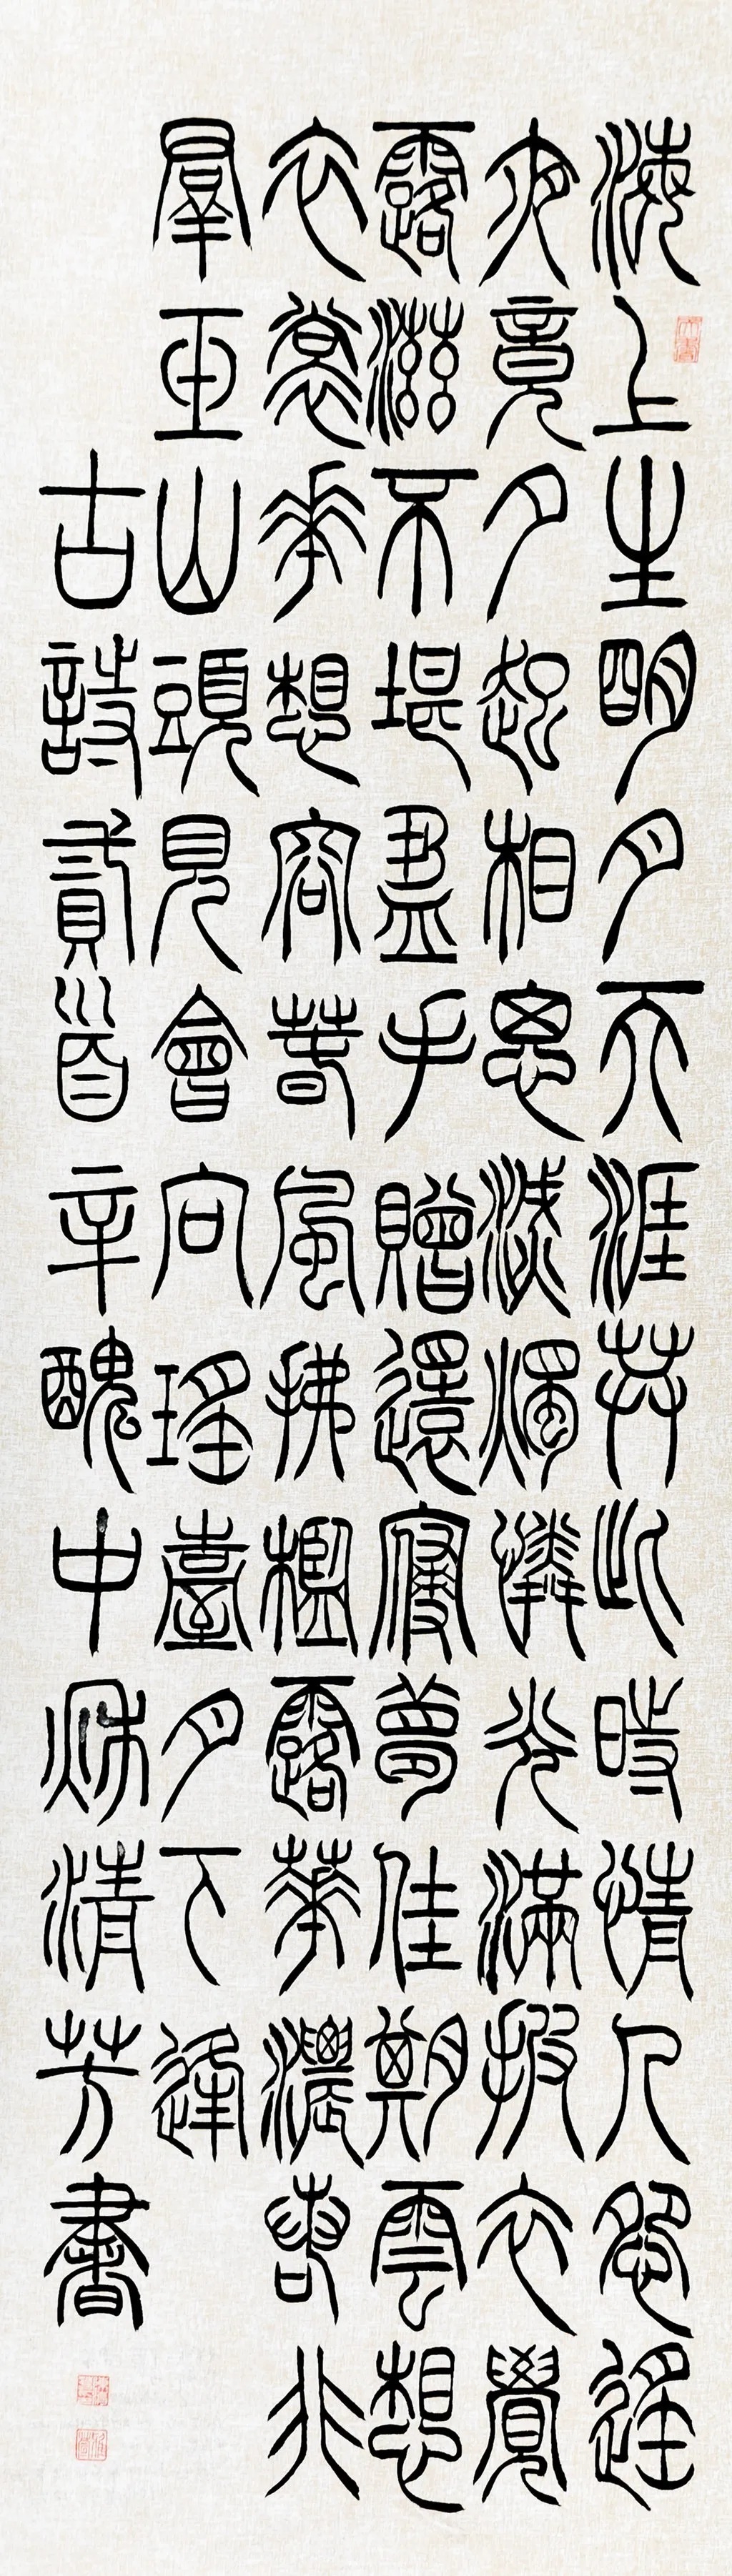 海上生明月天涯共此時情人怨遙
夜竟夕起相思滅燭憐光滿披衣覺
露滋不堪盡手贈還寢夢佳期雲想
衣裳花想容春風拂檻露華濃若非
羣玉山頭見會向瑤臺月下逢
古詩貳首辛醜中秋清芳書